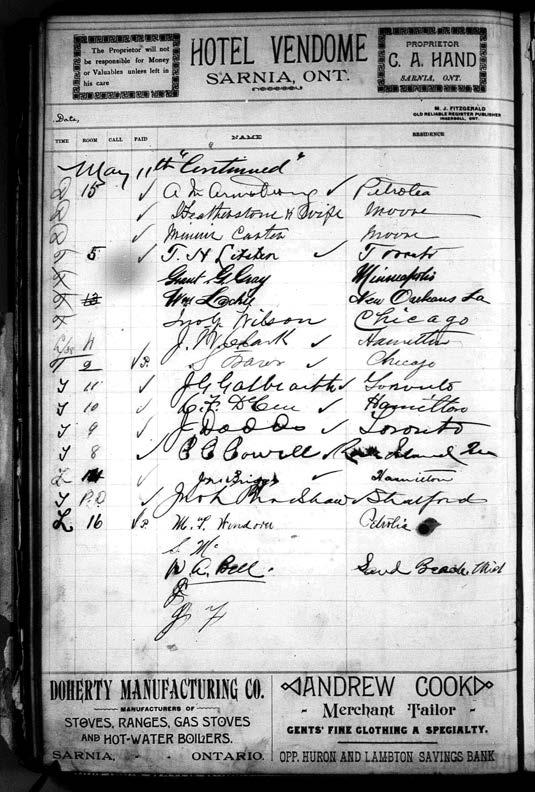 The Proprietor will not
be responsible for Money
or Valuables unless left in
his care
HOTEL VENDOME
SARNIA, ONT.
PROPRIETOR
C. A. HAND
SARNIA, ONT.
M. J. FITZGERALD
OLD RELIABLE REGISTER PUBLISHER
INGERSOLL, ONT.
Date,
TIME ROOM CALL PAID NAME RESIDENCE
May 11th "Continued"
D 15 ✓ A M Armstrong ✓ Petrolea
D ✓ Heatherstone & Wife Moore
D ✓ Minnie Carter Moore
T 5 ✓ T. H. ✓ Toronto
T Grant G. Gray Minneapolis
T 13 Wm New Orleans La
T Jno G. Wilson Chicago
✓ J. W. Clark ✓ Hamilton
T 2 ✓P. Chicago
T 11 ✓ J G Galbraith ✓ Toronto
T 10 ✓ ✓ Hamilton
T 9 ✓ J Dodds ✓ Toronto
T 8 ✓ C C Cowell Rock Island
L Jas Briggs ✓ Hamilton
T P.D ✓ Shaw Stratford
L 16 ✓P. M. Petrolia
W A. Bell. Sand Beach, Mich
DOHERTY MANUFACTURING CO.
MANUFACTURERS OF
STOVES, RANGES, GAS STOVES
AND HOT-WATER BOILERS.
SARNIA, - - ONTARIO.
ANDREW COOK
- Merchant Tailor -
GENTS' FINE CLOTHING A SPECIALTY.
OPP. HURON AND LAMBTON SAVINGS BANK